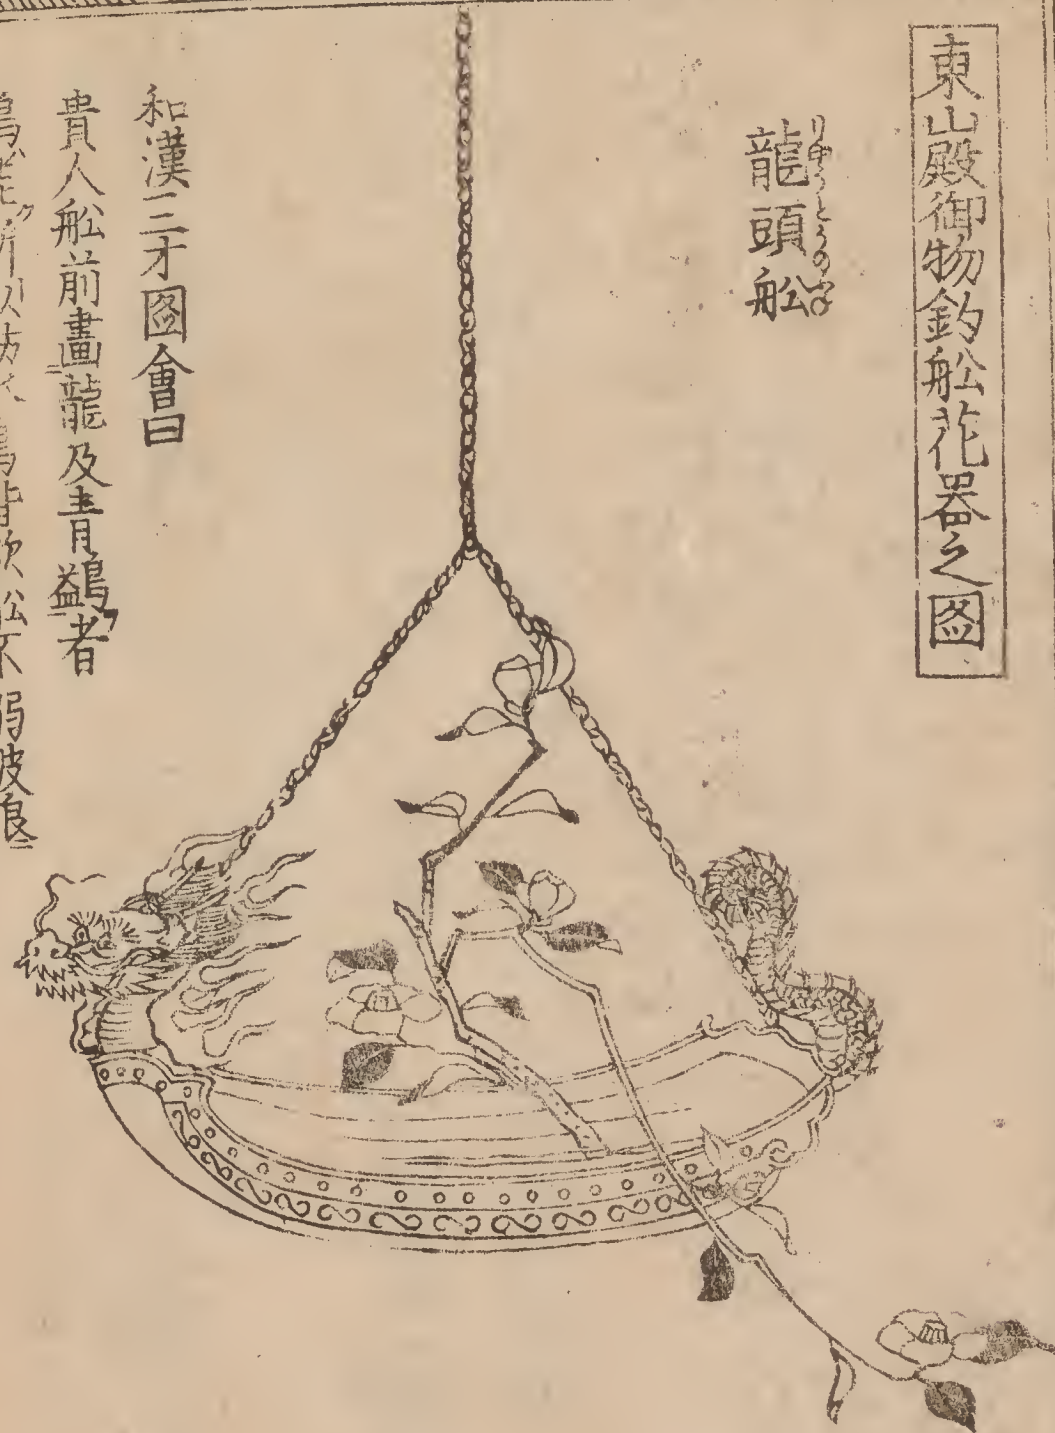 東山殿御物釣舩花器之圖
龍頭舩
りゅうとうのふね
和漢三才圖會曰
貴人舩前畫龍及青鷁者
鷁能